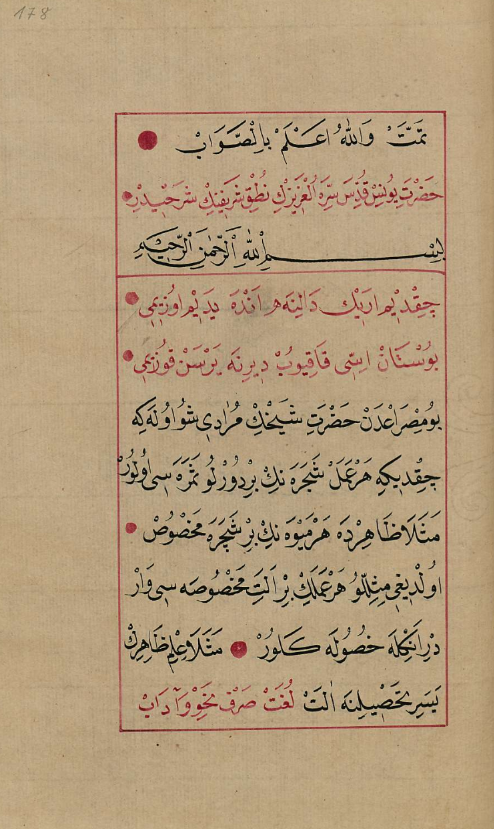 178
تَمَّتْ وَاللّٰهُ اَعْلَمْ بِالصَّوَابْ
حَضْرَتِ يُونُسْ قُدِّسَ سِرُّهُ الْعَزِيزِكْ نُطْقِ شَرِيفِنِكْ شَرْحِيدِرْ
بِسْمِ اللّٰهِ الرَّحْمٰنِ الرَّحِيمِ
چِقْدِيمْ اَرِيكْ دَالِنَه اَنْدَه يَدِيمْ اُوزِيمِى
بُوسْتَانْ اِسِّى قَاقِيُوبْ دِيرْنَه يَرْسِنْ قُوزِيمِى
بُو مِصْرَاعْدَنْ حَضْرَتِ شَيْخِكْ مُرَادِى شُو اُولَه كِه
چِقْدِيكِه هَرْ عَمَلْ شَجَرَه نِكْ بِرْ دُورْلُو ثَمَرَه سِى اُولُورْ
مَثَلَا ظَاهِرْدَه هَرْ مَيْوَه نِكْ بِرْ شَجَرَه مَخْصُوصْ
اُولْدِيغِى مِثِلَّو هَرْ عَمَلِكْ بِرْ اٰلَتِ مَخْصُوصَه سِى وَارْ
دِرْ اَنِكْلَه حُصُولَه كَلُورْ مَثَلَا عِلْمِ ظَاهِرِكْ
يَسِيرِ تَحْصِيلِنَه اٰلَتْ لُغَتْ صَرْفْ نَحْوْ وَ اٰدَابْ